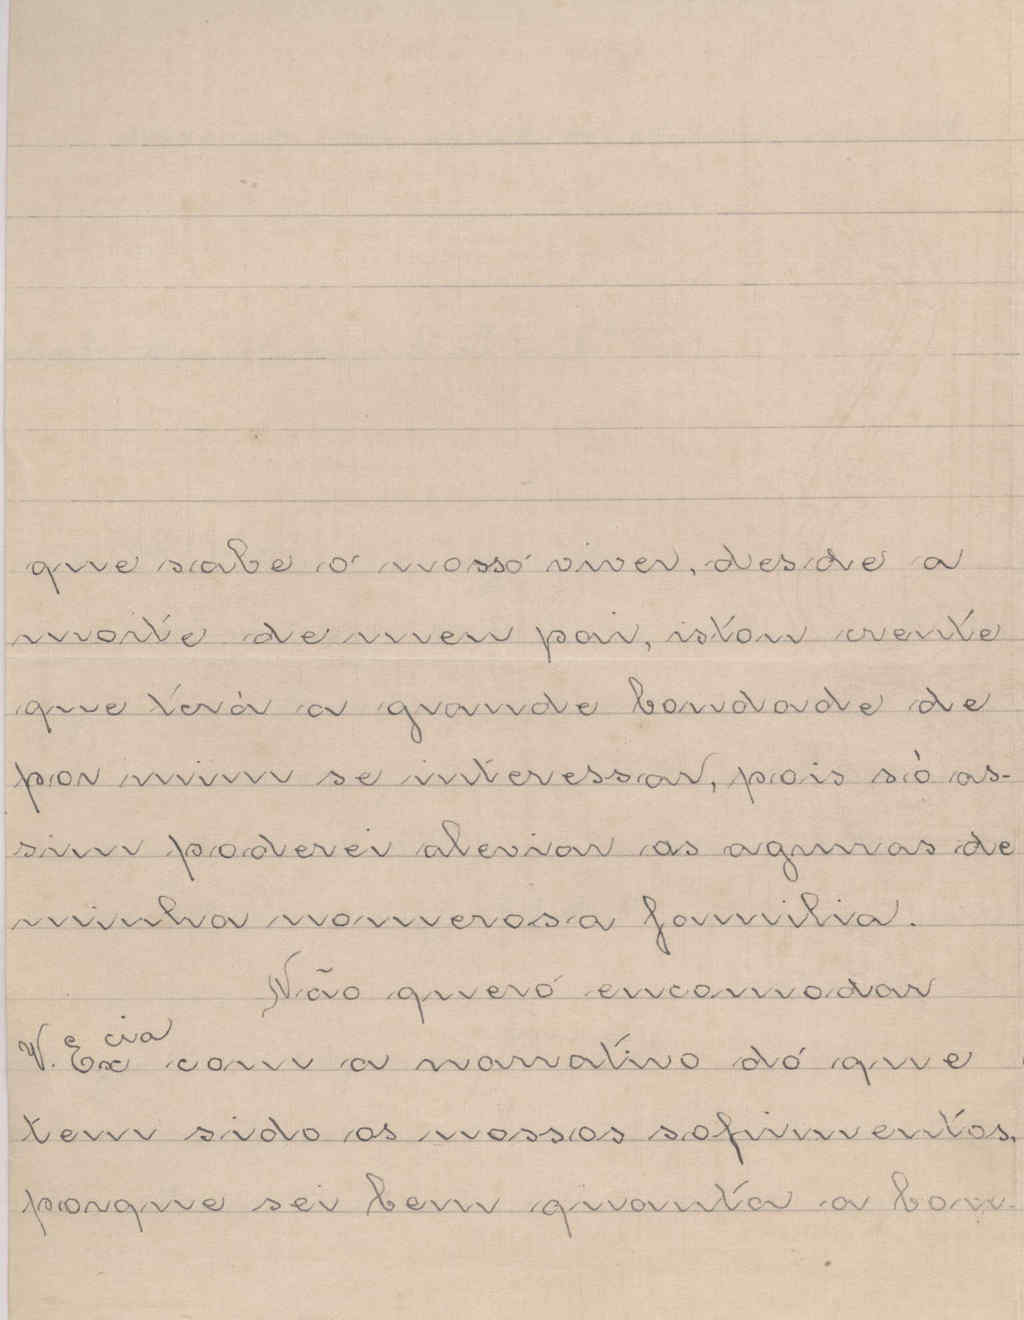 que sabe ó nossó viver, desde a
morte de meu pai, istou crente
que terá a grande bondade de
por mim se interessar, pois só as-
sim poderei aleviar as agruras de
minha nomerosa familia.
Não queró encomodar
V. Ex cia com a narrativo dó que
tem sido os nossos sofrimentos,
porque sei bem quanta a bon-